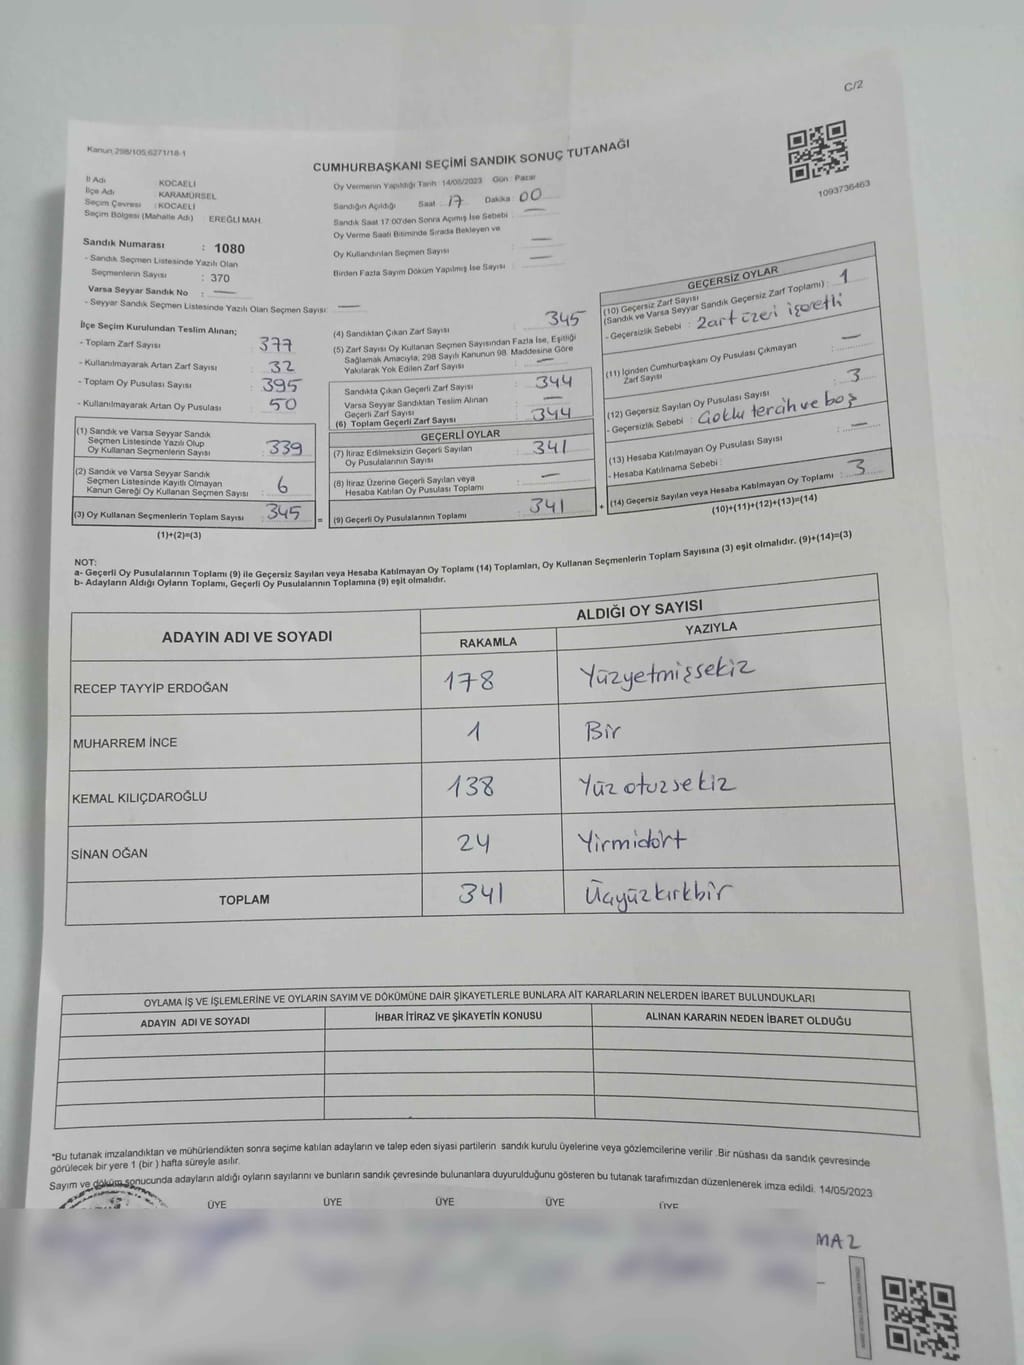 C/2
Kanun:298/105,6271/18-1
CUMHURBAŞKANI SEÇİMİ SANDIK SONUÇ TUTANAĞI
1093736463
İl Adı : KOCAELİ
İlçe Adı : KARAMÜRSEL
Seçim Çevresi : KOCAELİ
Seçim Bölgesi (Mahalle Adı) : EREĞLİ MAH.
Sandık Numarası : 1080
- Sandık Seçmen Listesinde Yazılı Olan
Seçmenlerin Sayısı : 370
Varsa Seyyar Sandık No : —
- Seyyar Sandık Seçmen Listesinde Yazılı Olan Seçmen Sayısı: —
Oy Vermenin Yapıldığı Tarih :14/05/2023 Gün : Pazar
Sandığın Açıldığı Saat : 17 Dakika : 00
Sandık Saat 17:00'den Sonra Açılmış İse Sebebi : —
Oy Verme Saati Bitiminde Sırada Bekleyen ve
Oy Kullandırılan Seçmen Sayısı : —
Birden Fazla Sayım Döküm Yapılmış İse Sayısı : —
İlçe Seçim Kurulundan Teslim Alınan;
- Toplam Zarf Sayısı : 377
- Kullanılmayarak Artan Zarf Sayısı : 32
- Toplam Oy Pusulası Sayısı : 395
- Kullanılmayarak Artan Oy Pusulası : 50
(1) Sandık ve Varsa Seyyar Sandık
Seçmen Listesinde Yazılı Olup
Oy Kullanan Seçmenlerin Sayısı : 339
(2) Sandık ve Varsa Seyyar Sandık
Seçmen Listesinde Kayıtlı Olmayan
Kanun Gereği Oy Kullanan Seçmen Sayısı : 6
(3) Oy Kullanan Seçmenlerin Toplam Sayısı : 345
(1)+(2)=(3)
=
(4) Sandıktan Çıkan Zarf Sayısı : 345
(5) Zarf Sayısı Oy Kullanan Seçmen Sayısından Fazla İse, Eşitliği
Sağlamak Amacıyla, 298 Sayılı Kanunun 98. Maddesine Göre
Yakılarak Yok Edilen Zarf Sayısı : —
Sandıkta Çıkan Geçerli Zarf Sayısı : 344
Varsa Seyyar Sandıktan Teslim Alınan
Geçerli Zarf Sayısı : —
(6) Toplam Geçerli Zarf Sayısı : 344
GEÇERLİ OYLAR
(7) İtiraz Edilmeksizin Geçerli Sayılan
Oy Pusulalarının Sayısı : 341
(8) İtiraz Üzerine Geçerli Sayılan veya
Hesaba Katılan Oy Pusulası Toplamı : —
(9) Geçerli Oy Pusulalarının Toplamı : 341
+
GEÇERSİZ OYLAR
(10) Geçersiz Zarf Sayısı
(Sandık ve Varsa Seyyar Sandık Geçersiz Zarf Toplamı) : 1
- Geçersizlik Sebebi : Zarf üzeri işaretli
(11) İçinden Cumhurbaşkanı Oy Pusulası Çıkmayan
Zarf Sayısı : —
(12) Geçersiz Sayılan Oy Pusulası Sayısı : 3
- Geçersizlik Sebebi : Çoklu tercih ve boş
(13) Hesaba Katılmayan Oy Pusulası Sayısı : —
- Hesaba Katılmama Sebebi :
(14) Geçersiz Sayılan veya Hesaba Katılmayan Oy Toplamı : 3
(10)+(11)+(12)+(13)=(14)
NOT:
a- Geçerli Oy Pusulalarının Toplamı (9) ile Geçersiz Sayılan veya Hesaba Katılmayan Oy Toplamı (14) Toplamları, Oy Kullanan Seçmenlerin Toplam Sayısına (3) eşit olmalıdır. (9)+(14)=(3)
b- Adayların Aldığı Oyların Toplamı, Geçerli Oy Pusulalarının Toplamına (9) eşit olmalıdır.
ADAYIN ADI VE SOYADI
ALDIĞI OY SAYISI
RAKAMLA YAZIYLA
RECEP TAYYİP ERDOĞAN 178 Yüzyetmişsekiz
MUHARREM İNCE 1 Bir
KEMAL KILIÇDAROĞLU 138 Yüzotuzsekiz
SİNAN OĞAN 24 Yirmidört
TOPLAM 341 Üçyüzkırkbir
OYLAMA İŞ VE İŞLEMLERİNE VE OYLARIN SAYIM VE DÖKÜMÜNE DAİR ŞİKAYETLERLE BUNLARA AİT KARARLARIN NELERDEN İBARET BULUNDUKLARI
ADAYIN ADI VE SOYADI İHBAR İTİRAZ VE ŞİKAYETİN KONUSU ALINAN KARARIN NEDEN İBARET OLDUĞU
*Bu tutanak imzalandıktan ve mühürlendikten sonra seçime katılan adayların ve talep eden siyasi partilerin sandık kurulu üyelerine veya gözlemcilerine verilir .Bir nüshası da sandık çevresinde
görülecek bir yere 1 (bir ) hafta süreyle asılır.
Sayım ve döküm sonucunda adayların aldığı oyların sayılarını ve bunların sandık çevresinde bulunanlara duyurulduğunu gösteren bu tutanak tarafımızdan düzenlenerek imza edildi. 14/05/2023
ÜYE ÜYE ÜYE ÜYE ÜYE
MAZ